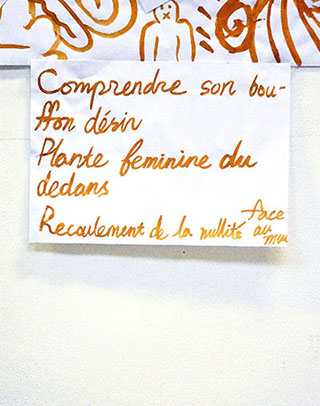 Comprendre son bou-
ffon désir
Plante feminine du
dedans
Recoulement de la nullité face
au mur